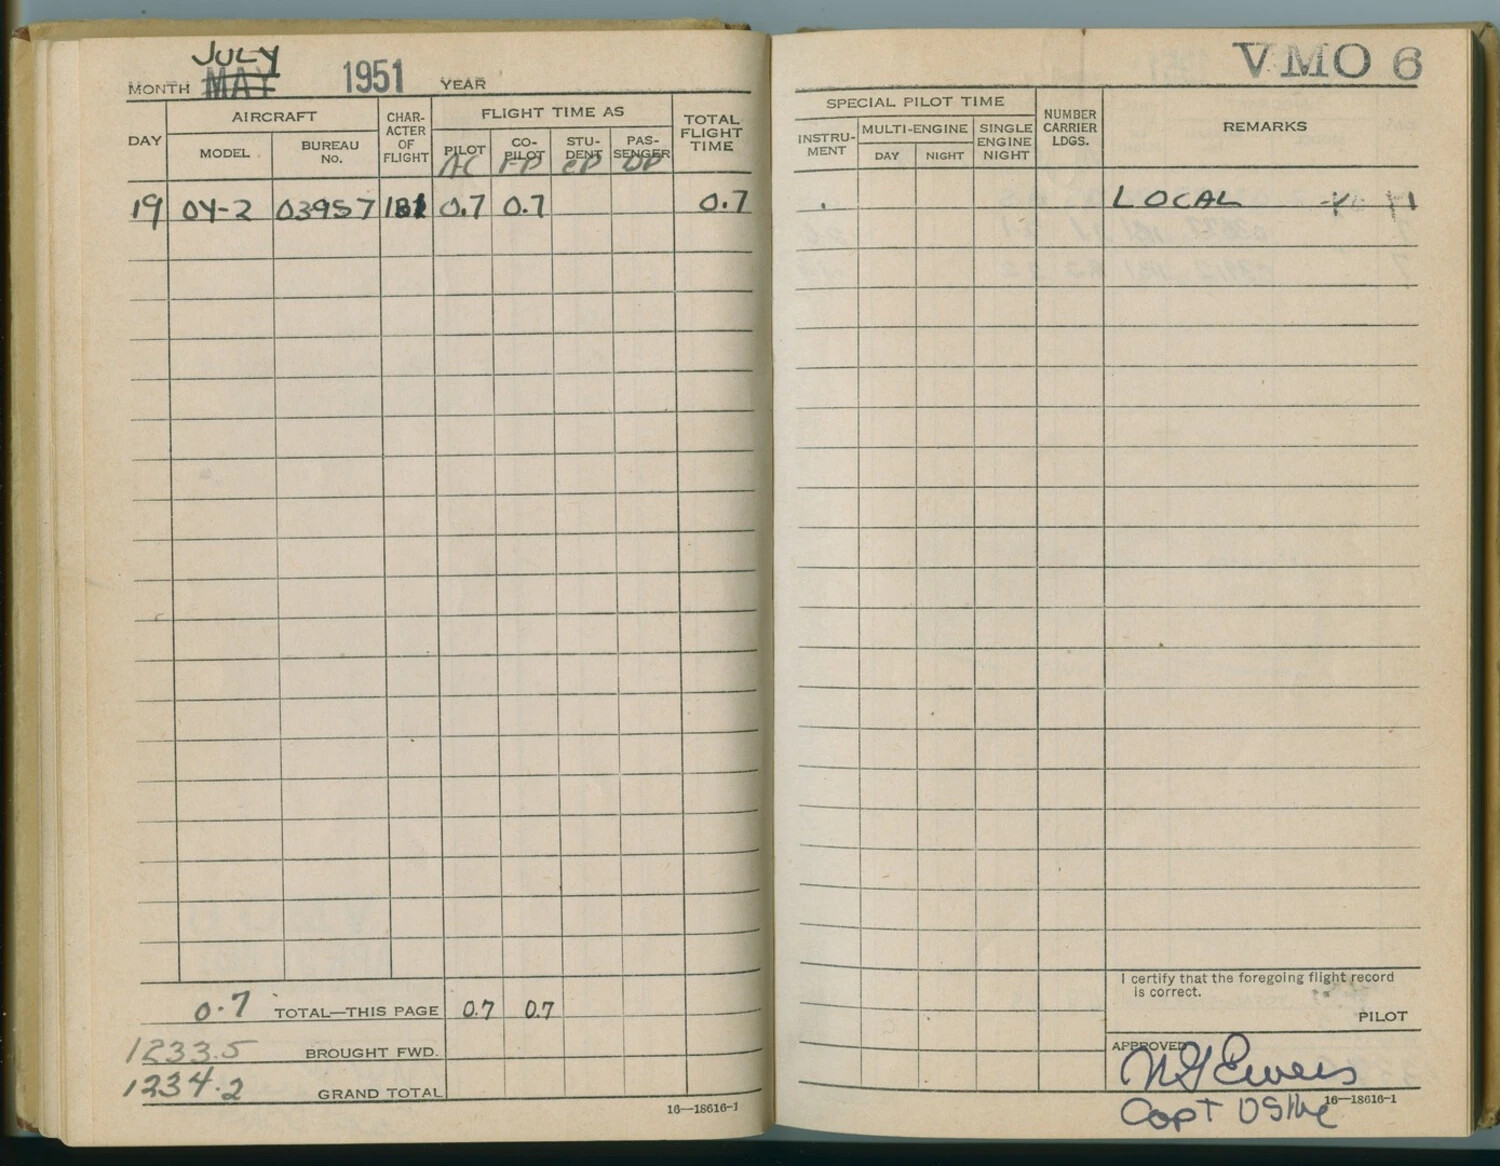 JULY
MONTH MAY 1951 YEAR
DAY
AIRCRAFT
MODEL
BUREAU No.
CHAR-ACTER OF FLIGHT
FLIGHT TIME AS
PILOT
CO-PILOT
STU-DENT
PAS-SENGER
AC FP CP DP
TOTAL FLIGHT TIME
19 OY-2 03957 1B1 0.7 0.7 0.7
0.7 TOTAL—THIS PAGE 0.7 0.7
1233.5 BROUGHT FWD.
1234.2 GRAND TOTAL
16—18616-1
VMO 6
SPECIAL PILOT TIME
INSTRU-MENT
MULTI-ENGINE
DAY
NIGHT
SINGLE ENGINE NIGHT
NUMBER CARRIER LDGS.
REMARKS
LOCAL
I certify that the foregoing flight record
is correct.
PILOT
APPROVED
N G Ewers
Capt USMC
16—18616-1